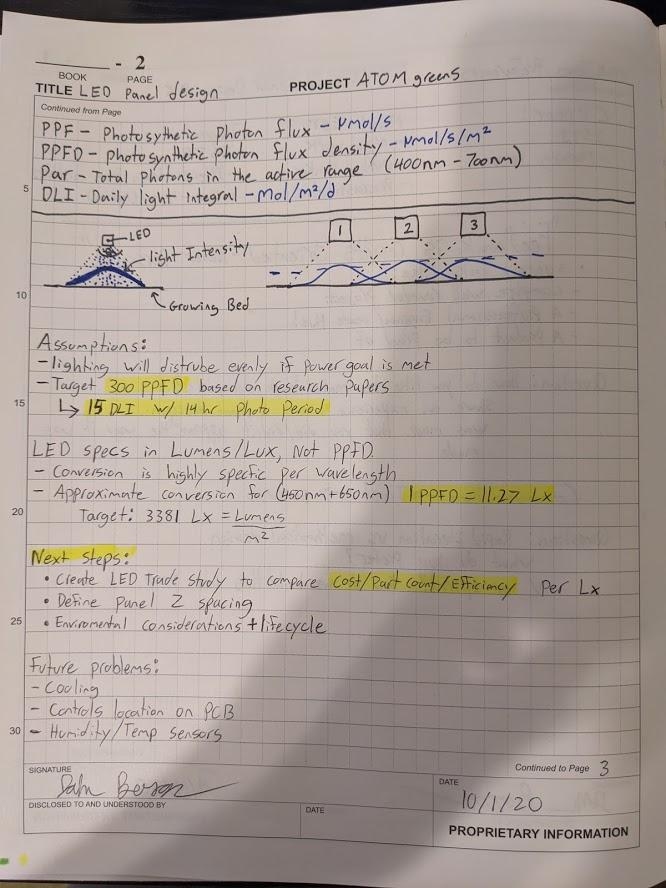 - 2
BOOK PAGE
TITLE LED Panel design PROJECT ATOM greens
Continued from Page
PPF - Photosythetic Photon flux - μmol/s
PPFD - Photosynthetic Photon flux density - μmol/s/m²
Par - Total Photons in the active range (400nm - 700nm)
5
DLI - Daily light integral - Mol/m²/d
LED
light Intensity
1 2 3
10
Growing Bed
Assumptions:
- lighting will distrube evenly if power goal is met
- Target 300 PPFD based on research papers
15
↳ 15 DLI w/ 14 hr Photo Period
LED specs in Lumens/Lux, Not PPFD
- Conversion is highly specfic per wavelength
- Approximate conversion for (450nm+650nm) 1 PPFD = 11.27 Lx
20
Target: 3381 Lx = Lumens
m²
Next Steps:
• Create LED Trade Study to compare Cost/Part count/Efficiamcy Per Lx
• Define Panel Z spacing
25
• Enviromental considerations + lifecycle
Future problems:
- Cooling
- Controls location on PCB
30
- Humidity/Temp sensors
Continued to Page 3
SIGNATURE
DATE
10/1/20
DISCLOSED TO AND UNDERSTOOD BY
DATE
PROPRIETARY INFORMATION